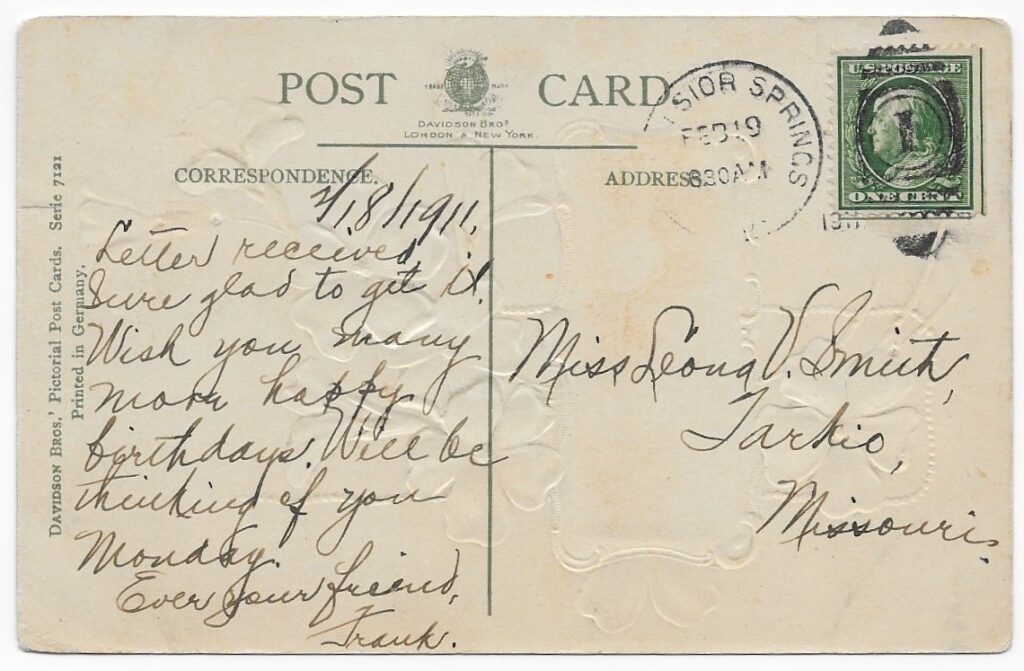 POST CARD
TRADE MARK
DAVIDSON BROS
LONDON & NEW YORK.
SIOR SPRINGS
FEB 19
630 AM
1911
U.S. POSTAGE
1
ONE CENT
CORRESPONDENCE.
ADDRESS
DAVIDSON BROS.' Pictorial Post Cards. Serie 7121
Printed in Germany.
2/18/1911.
Letter received
Sure glad to get it.
Wish you many
more happy
birthdays. Will be
thinking of you
Monday.
Ever your friend,
Frank.
Miss Leona V. Smith,
Tarkio,
Missouri.